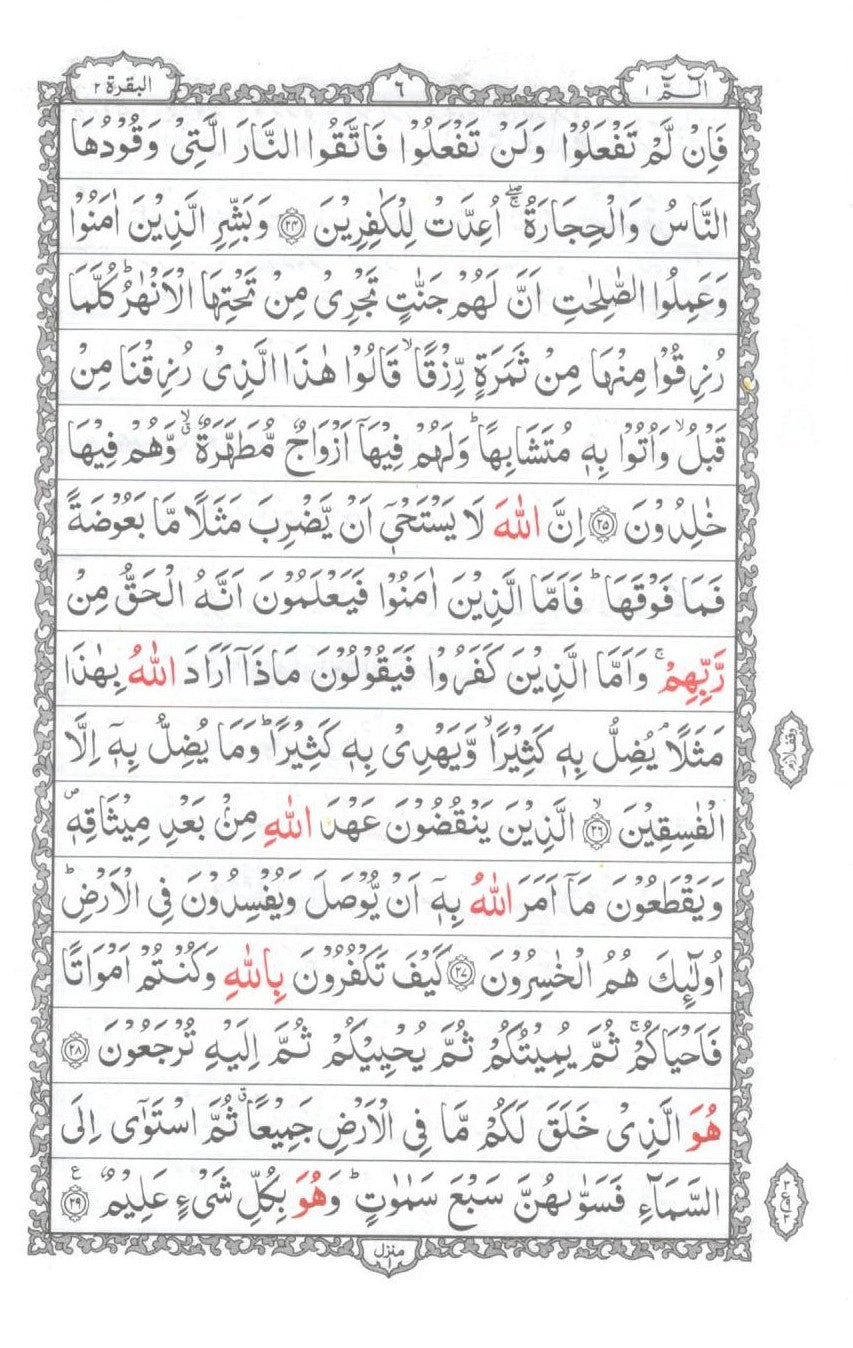 الٓمّٓ ١
٦
البقرة ٢
فَاِنْ لَّمْ تَفْعَلُوْا وَلَنْ تَفْعَلُوْا فَاتَّقُوا النَّارَ الَّتِیْ وَقُوْدُهَا
النَّاسُ وَالْحِجَارَةُ ۖۚ اُعِدَّتْ لِلْكٰفِرِیْنَ ﴿۲۴﴾ وَبَشِّرِ الَّذِیْنَ اٰمَنُوْا
وَعَمِلُوا الصّٰلِحٰتِ اَنَّ لَهُمْ جَنّٰتٍ تَجْرِیْ مِنْ تَحْتِهَا الْاَنْهٰرُ ؕ كُلَّمَا
رُزِقُوْا مِنْهَا مِنْ ثَمَرَةٍ رِّزْقًا ۙ قَالُوْا هٰذَا الَّذِیْ رُزِقْنَا مِنْ
قَبْلُ ۙ وَاُتُوْا بِهٖ مُتَشَابِهًا ؕ وَلَهُمْ فِیْهَاۤ اَزْوَاجٌ مُّطَهَّرَةٌ ۙۗ وَّهُمْ فِیْهَا
خٰلِدُوْنَ ﴿۲۵﴾ اِنَّ اللّٰهَ لَا یَسْتَحْیٖۤ اَنْ یَّضْرِبَ مَثَلًا مَّا بَعُوْضَةً
فَمَا فَوْقَهَا ؕ فَاَمَّا الَّذِیْنَ اٰمَنُوْا فَیَعْلَمُوْنَ اَنَّهُ الْحَقُّ مِنْ
رَّبِّهِمْ ۚ وَاَمَّا الَّذِیْنَ كَفَرُوْا فَیَقُوْلُوْنَ مَاذَاۤ اَرَادَ اللّٰهُ بِهٰذَا
مَثَلًا ۘ یُضِلُّ بِهٖ كَثِیْرًا ۙ وَّیَهْدِیْ بِهٖ كَثِیْرًا ؕ وَمَا یُضِلُّ بِهٖۤ اِلَّا
الْفٰسِقِیْنَ ۙ﴿۲۶﴾ الَّذِیْنَ یَنْقُضُوْنَ عَهْدَ اللّٰهِ مِنْۢ بَعْدِ مِیْثَاقِهٖ ۪
وَیَقْطَعُوْنَ مَاۤ اَمَرَ اللّٰهُ بِهٖۤ اَنْ یُّوْصَلَ وَیُفْسِدُوْنَ فِی الْاَرْضِ ؕ
اُولٰٓئِكَ هُمُ الْخٰسِرُوْنَ ﴿۲۷﴾ كَیْفَ تَكْفُرُوْنَ بِاللّٰهِ وَكُنْتُمْ اَمْوَاتًا
فَاَحْیَاكُمْ ۚ ثُمَّ یُمِیْتُكُمْ ثُمَّ یُحْیِیْكُمْ ثُمَّ اِلَیْهِ تُرْجَعُوْنَ ﴿۲۸﴾
هُوَ الَّذِیْ خَلَقَ لَكُمْ مَّا فِی الْاَرْضِ جَمِیْعًا ۗ ثُمَّ اسْتَوٰۤی اِلَی
السَّمَآءِ فَسَوّٰىهُنَّ سَبْعَ سَمٰوٰتٍ ؕ وَهُوَ بِكُلِّ شَیْءٍ عَلِیْمٌ ﴿۲۹﴾ ع
وقف لازم
۳ ع ۹ ۳
منزل ١